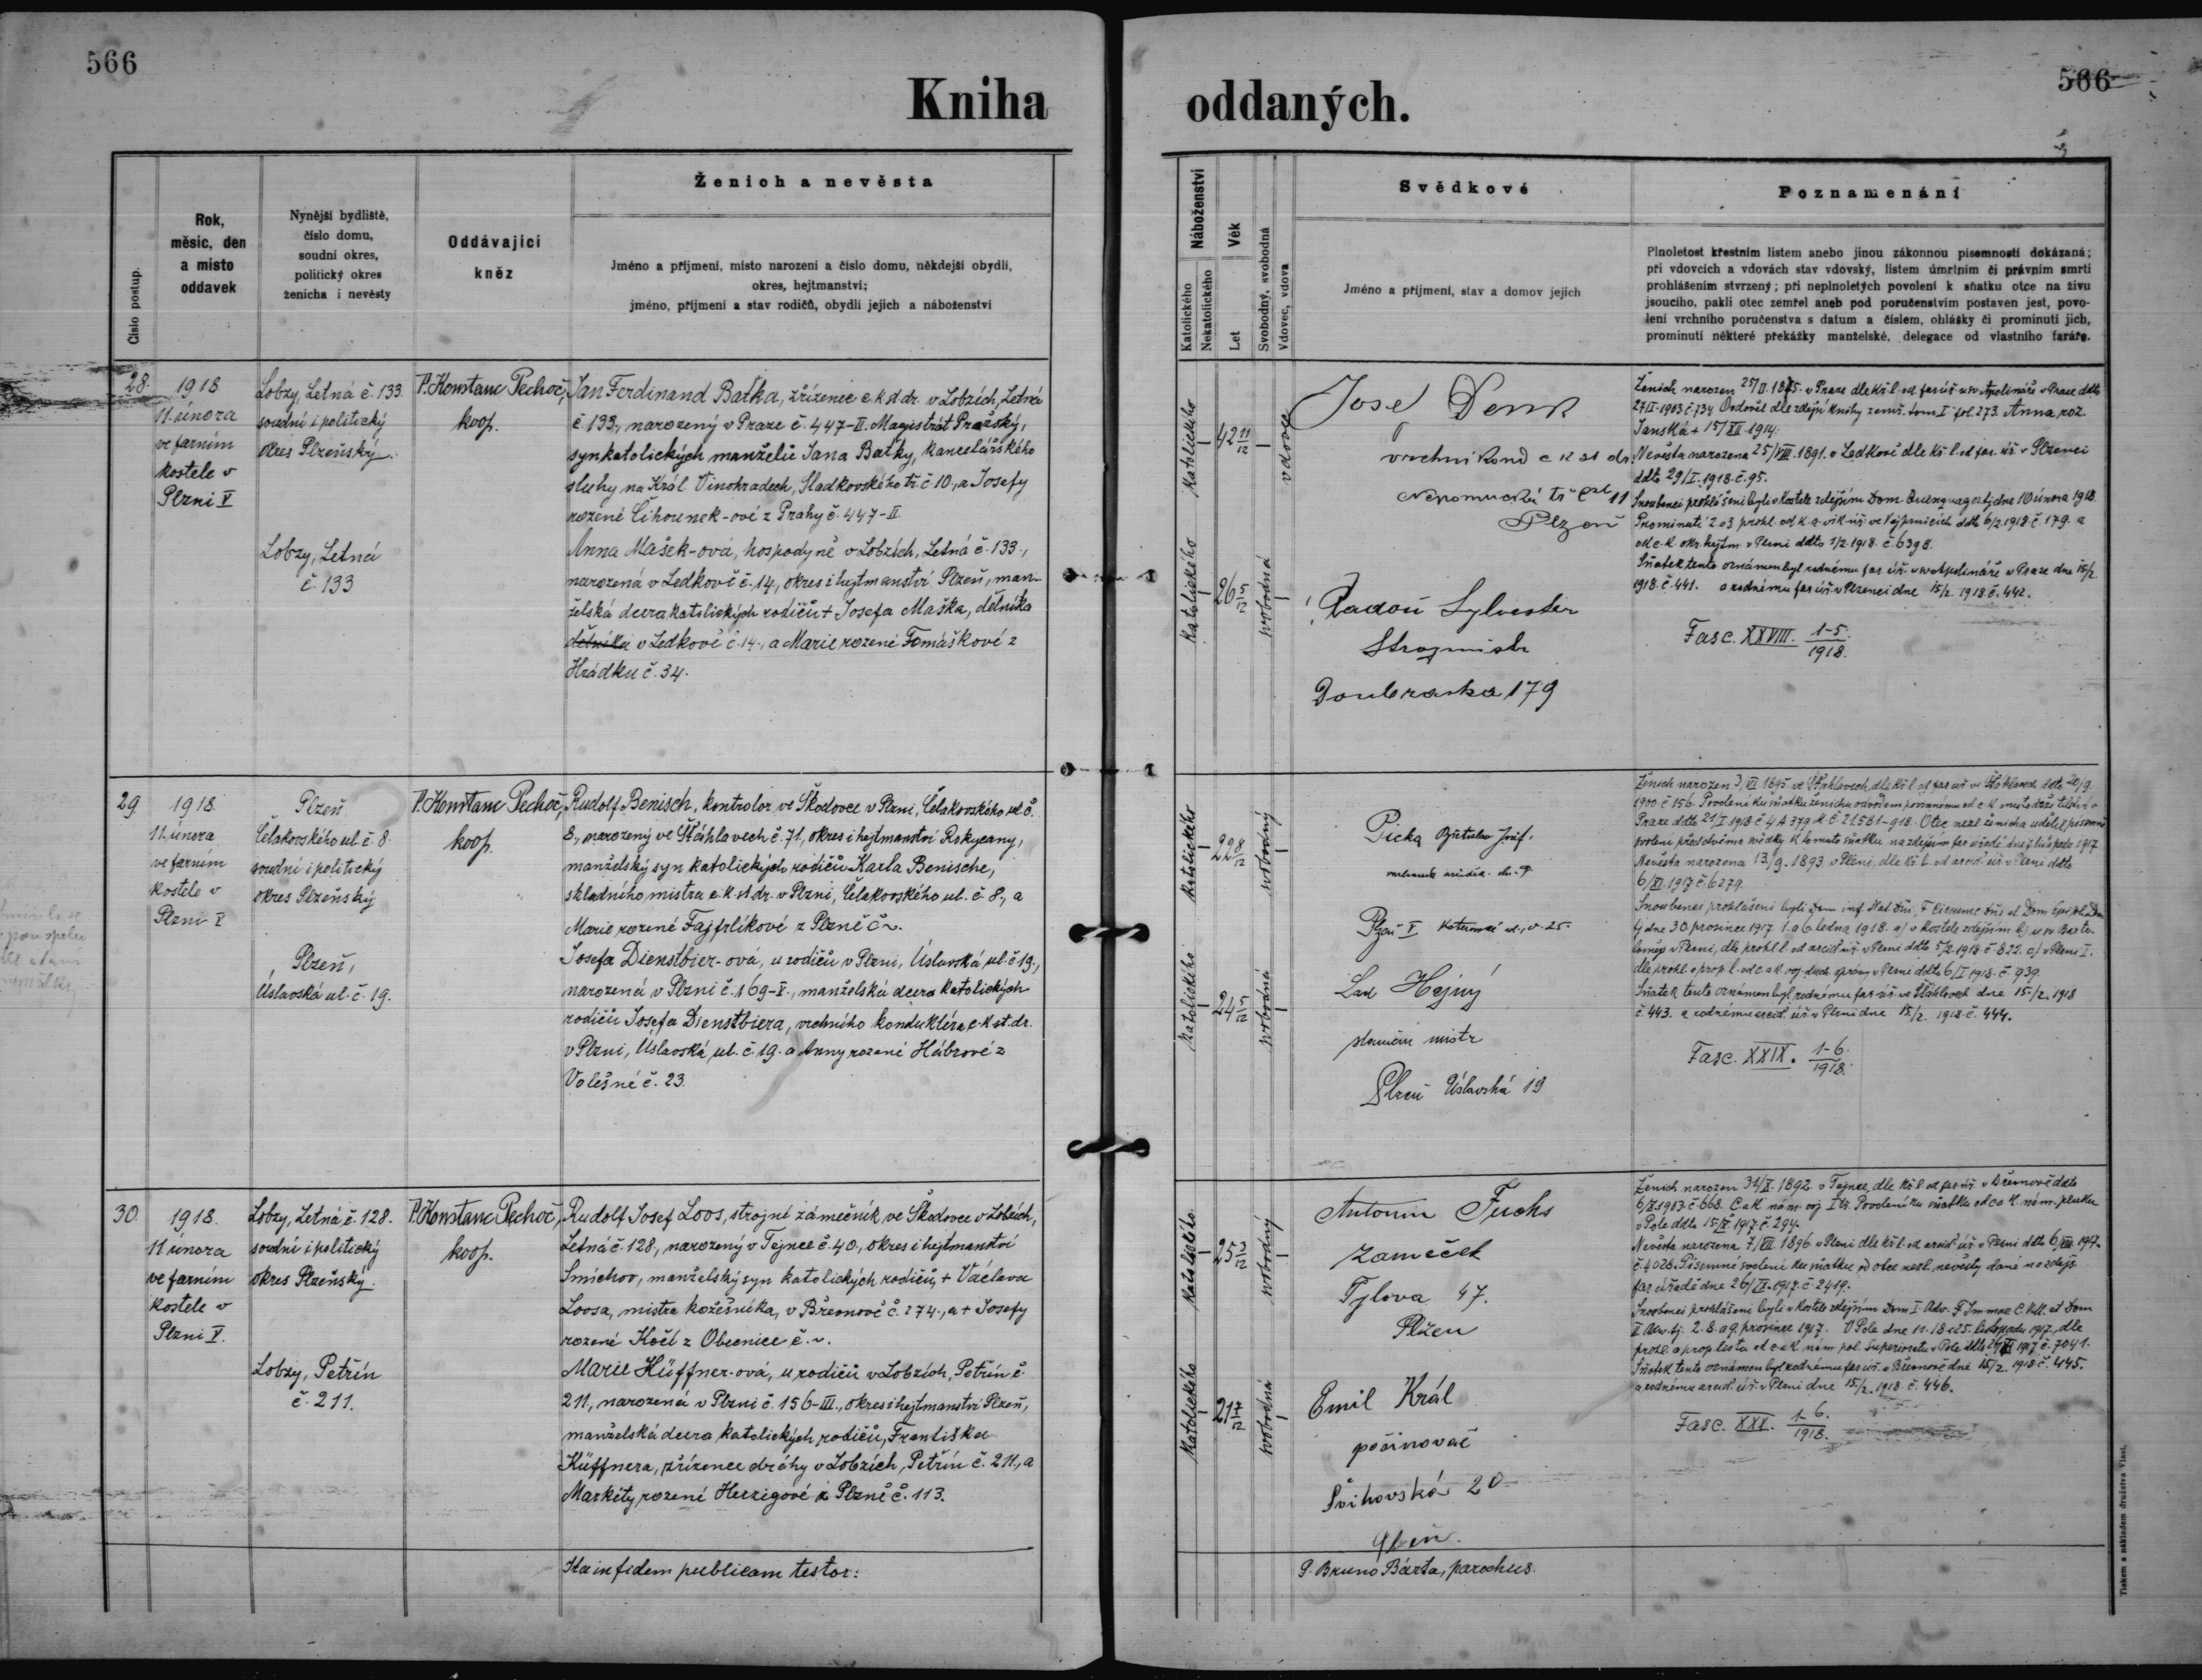 566
566
Kniha oddaných.
Číslo postup.
Rok,
měsíc, den
a místo
oddavek
Nynější bydliště,
číslo domu,
soudní okres,
politický okres
ženicha i nevěsty
Oddávající
kněz
Ženich a nevěsta
Jméno a příjmení, místo narození a číslo domu, někdejší obydlí,
okres, hejtmanství;
jméno, příjmení a stav rodičů, obydlí jejich a náboženství
Náboženství
Katolického
Nekatolického
Věk
Let
Svobodný, svobodná
Vdovec, vdova
Svědkové
Jméno a příjmení, stav a domov jejich
Poznamenání
Plnoletost křestním listem anebo jinou zákonnou písemností dokázaná;
při vdovcích a vdovách stav vdovský, listem úmrtním či právním smrti
prohlášením stvrzený; při neplnoletých povolení k sňatku otce na živu
jsoucího, pakli otec zemřel aneb pod poručenstvím postaven jest, povo-
lení vrchního poručenstva s datum a číslem, ohlášky či prominutí jich,
prominutí některé překážky manželské, delegace od vlastního faráře.
28.
1918
11. února
ve farním
kostele v
Plzni V
Lobzy, Letná č. 133.
soudní i politický
okres Plzeňský.
Lobzy, Letná
č. 133
P. Konstanc Pechoč,
koop.
Jan Ferdinand Baťka, zřízenec c.k. st. dr. v Lobzích, Letná
č. 133, narozený v Praze č. 447-II. Magistrát Pražský,
syn katolických manželů Jana Baťky, kancelářského
sluhy na Král. Vinohradech, Sladkovského tř. č. 10, a Josefy
rozené Čihounek-ové z Prahy č. 447-II.
Anna Mašek-ová, hospodyně v Lobzích, Letná č. 133.,
narozená v Ledkově č. 14, okres i hejtmanství Plzeň, man-
želská dcera katolických rodičů + Josefa Maška, dělníka
dělníka v Ledkově č. 14., a Marie rozené Tomáškové z
Hrádku č. 34.
katolického
42 11/12
vdovec
katolického
26 5/12
svobodná
Josef Denk
vrchní kond c k st dr.
Nepomucká tř čís 11
Plzeň
Radou Sylvester
Strojmistr
Doubravka 179
Ženich narozen 25/II. 1875. v Praze dle kř. l. od far. úř. u sv. Apolináře v Praze ddto
27/II. 1903 č. 734 Ovdověl dle zdejší knihy zemř. tom I. fol. 273. Anna roz.
Janská + 15/XII 1914.
Nevěsta narozena 25/VIII. 1891. v Ledkově dle kř. l. od far. úř. v Plzenci
ddto 29/I. 1918. č. 95.
Snoubenci prohlášeni byli v kostele zdejším Dom. Quinquag. t.j. dne 10 února 1918.
Prominutí 2. a 3. prohl. od k. a. vik. úř. ve Vejprnicích ddto 6/2. 1918. č. 179. a
od c.k. okr. hejtm. v Plzni ddto 1/2. 1918. č. 6398.
Sňatek tento oznámen byl rodnému far. úř. u sv. Apolináře v Praze dne 15/2.
1918. č. 441. a rodnému far. úř. v Plzenci dne 15/2. 1918 č. 442.
Fasc. XXVIII. 1-5./1918.
29.
1918.
11. února
ve farním
kostele v
Plzni V
Plzeň
Čelakovského ul. č. 8.
soudní i politický
okres Plzeňský
Plzeň,
Úslavská ul. č. 19.
P. Konstanc Pechoč,
koop.
Rudolf Benisch, kontrolor ve Škodovce v Plzni, Čelakovského ul. č.
8., narozený ve Šťáhlavech č. 71, okres i hejtmanství Rokycany,
manželský syn katolických rodičů Karla Benische,
skladního mistra c.k. st. dr. v Plzni, Čelakovského ul. č. 8., a
Marie rozené Fajfrlíkové z Plzně č ~.
Josefa Dienstbier-ová, u rodičů v Plzni, Úslavská ul. č. 19.,
narozená v Plzni č. 169-V., manželská dcera katolických
rodičů Josefa Dienstbiera, vrchního konduktéra c.k. st. dr.
v Plzni, Úslavská ul. č. 19. a Anny rozené Hábrové z
Volešné č. 23.
katolického
22 8/12
svobodný
katolického
24 5/12
svobodná
Picka Břetislav Josef.
Plzeň V Koterovská ul., č. 25.
Lad Hejný
staniční mistr
Plzeň Úslavská 19
Ženich narozen 3/VI. 1895. ve Šťáhlavech, dle kř. l. od far. úř. v Šťáhlavech ddto 20/9.
1900 č. 156.
Praze ddto 21/I. 1918
Nevěsta narozena 13./9. 1893. v Plzni, dle kř. l. od arcid. úř. v Plzni ddto
6/XI. 1917 č. 6279.
tj. dne 30. prosince 1917. 1. a 6. ledna 1918.
Sňatek tento oznámen byl rodnému far. úř. ve Šťáhlavech dne 15./2. 1918
č. 443. a rodnému arcid. úř. v Plzni dne 15./2. 1918. č. 444.
Fasc. XXIX. 1-6./1918.
30.
1918.
11 února
ve farním
kostele v
Plzni V.
Lobzy, Letná č. 128.
soudní i politický
okres Plzeňský.
Lobzy, Petřín
č. 211.
P. Konstanc Pechoč,
koop.
Rudolf Josef Loos, strojní zámečník ve Škodovce v Lobzích,
Letná č. 128, narozený v Tejnce č. 40., okres i hejtmanství
Smíchov, manželský syn katolických rodičů, + Václava
Loosa, mistra kožešníka, v Břevnově č. 274., a + Josefy
rozené Kočí z Obecnice č. ~.
Marie Küffner-ová, u rodičů v Lobzích, Petřín č.
211, narozená v Plzni č. 156-III., okres i hejtmanství Plzeň,
manželská dcera katolických rodičů, Františka
Küffnera, zřízence dráhy v Lobzích, Petřín č. 211., a
Markéty rozené Herzigové z Plzně č. 113.
katolického
25 3/12
svobodný
katolického
21 7/12
svobodná
Antonín Fuchs
zámeček
Tylova 47.
Plžen
Emil Král
počinovač
Švihovská 20
Plzeň.
Ženich narozen 31/X. 1892. v Tejnce, dle kř. l. od far. úř. v Břevnově ddto
v Pole ddto 15/X. 1917. č. 294.
Nevěsta narozena 7/VII. 1896. v Plzni dle kř. l. od arcid. úř. v Plzni ddto 6/VIII. 1917.
č. 4026. Písemné svolení ku sňatku od otce nezl. nevěsty dané na zdejš.
far. úřadě dne 26/XI. 1917. č. 2419.
II. Adv. tj. 2. 8. a 9. prosince 1917. V Pole dne 11. 18. a 25. listopadu 1917., dle
Sňatek tento oznámen byl rodnému far. úř. v Břevnově dne 15/2. 1918 č. 445.
a rodnému arcid. úř. v Plzni dne 15/2. 1918. č. 446.
Fasc. XXX. 1-6./1918.
Ita in fidem publicam testor:
P. Bruno Bárta, parochus.
Tiskem a nákladem družstva Vlast.